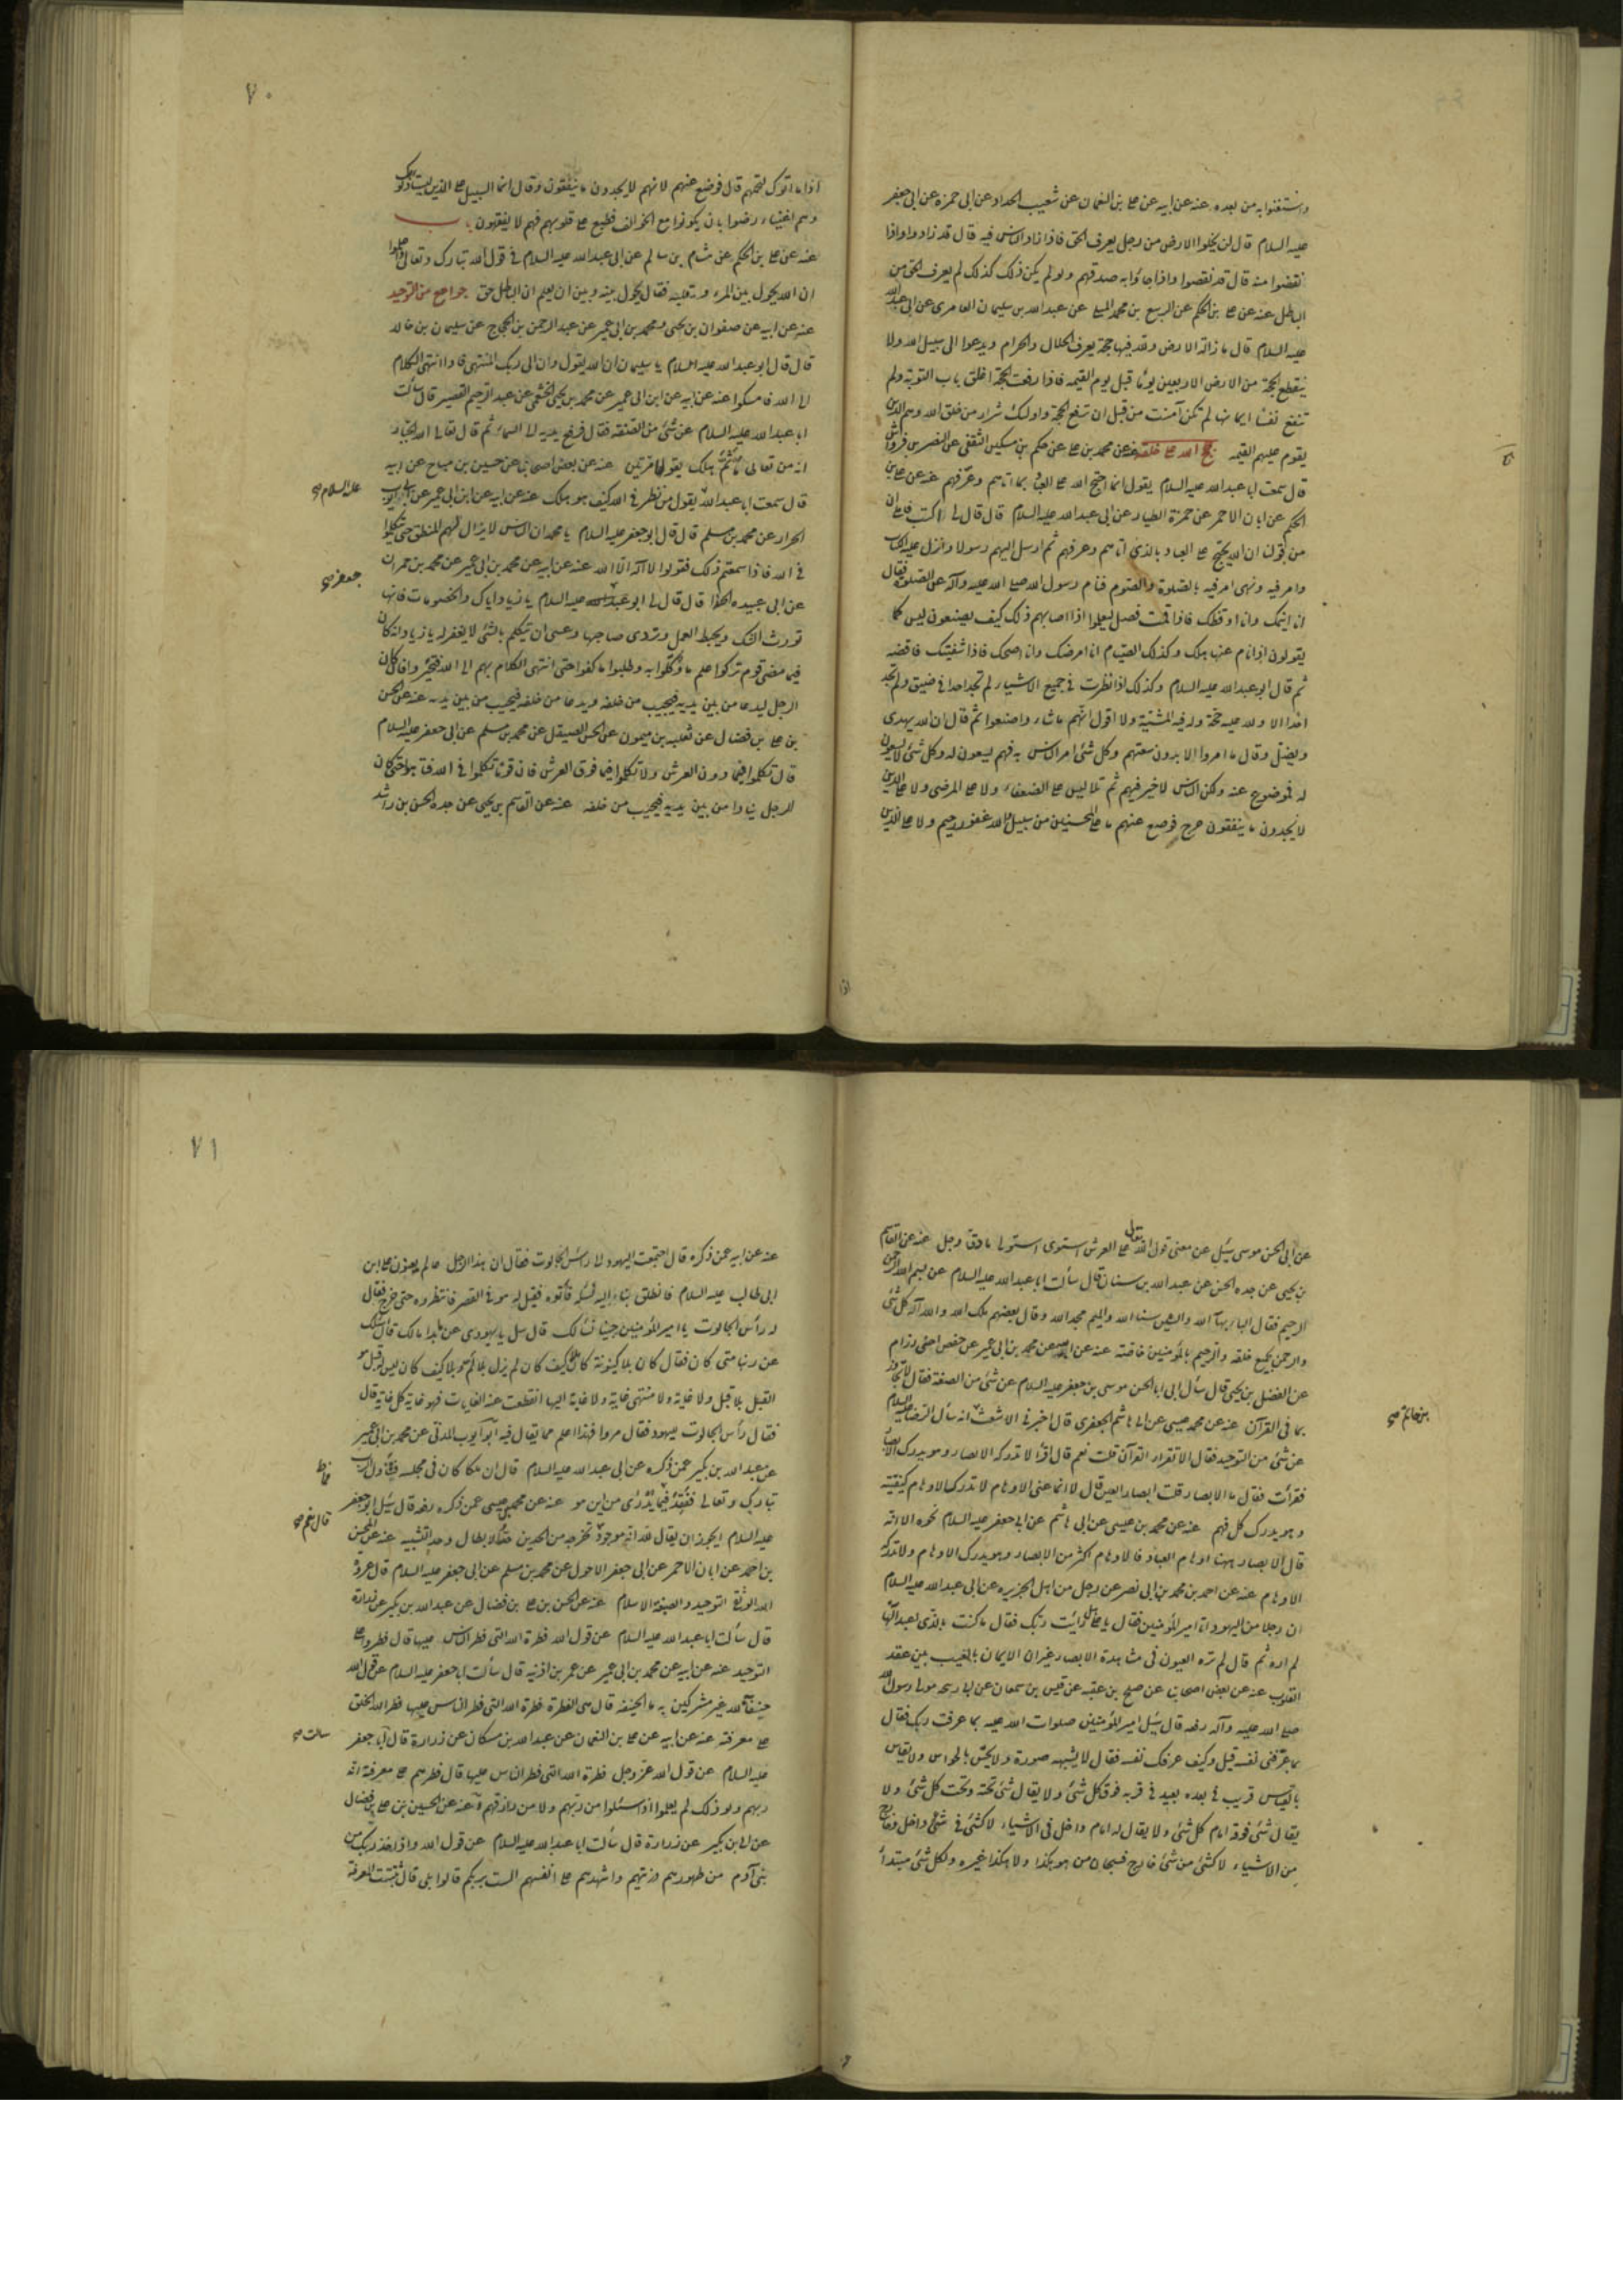 واستغنوا به من بعده عنه عن ابيه عن على بن النعمان عن شعيب الحداد عن ابى حمزة عن ابى جعفر
عليه السلام قال لن يخلوا الارض من رجل يعرف الحق فاذا زاد الناس فيه قال قد زادوا واذا
نقصوا منه قال قد نقصوا واذا جاؤا به صدقهم ولو لم يكن ذلك كذلك لم يعرف الحق من
الباطل عنه عن على بن الحكم عن الربيع بن محمد المسلى عن عبد الله بن سليمان العامرى عن ابى عبد الله
عليه السلام قال ما زالت الارض ولله فيها حجة يعرف الحلال والحرام ويدعوا الى سبيل الله ولا
ينقطع الحجة من الارض الا اربعين يوما قبل يوم القيمه فاذا رفعت الحجة اغلق باب التوبة ولم
تنفع نفسا ايمانها لم تكن آمنت من قبل ان ترفع الحجة واولئك شرار من خلق الله وهم الذين
يقوم عليهم القيمه حجج الله على خلقه عنه عن محمد بن على عن حكم بن مسكين الثقفى عن النضر بن قرواش
قال سمعت ابا عبد الله عليه السلام يقول انما احتج الله على العباد بما آتاهم وعرفهم عنه عن على بن
الحكم عن ابان الاحمر عن حمزة الطيار عن ابى عبد الله عليه السلام قال قال لى اكتب فاملى ان
من قولنا ان الله يحتج على العباد بالذى آتاهم وعرفهم ثم ارسل اليهم رسولا وانزل عليه الكتاب
وامر فيه ونهى امر فيه بالصلوة والصوم فنام رسول الله صلى الله عليه وآله عن الصلوة فقال
انا انيمك وانا اوقظك فاذا قمت فصل ليعلموا اذا اصابهم ذلك كيف يصنعون ليس كما
يقولون اذا نام عنها هلك وكذلك الصيام انا امرضك وانا اصحك فاذا شفيتك فاقضه
ثم قال ابو عبد الله عليه السلام وكذلك اذا نظرت فى جميع الاشياء لم تجد احدا فى ضيق ولم تجد
احدا الا ولله عليه حجة وله فيه المشية ولا اقول انهم ما شاءوا صنعوا ثم قال ان الله يهدى
ويضل وقال ما امروا الا بدون سعتهم وكل شئ امر الناس به فهم يسعون له وكل شئ لا يسعون
له فموضوع عنه ولكن الناس لا خير فيهم ثم تلا ليس على الضعفاء ولا على المرضى ولا على الذين
لا يجدون ما ينفقون حرج فوضع عنهم ما على المحسنين من سبيل والله غفور رحيم ولا على الذين
اذا
٧٠
اذا ما اتوك لتحملهم قال فوضع عنهم لانهم لا يجدون ما ينفقون وقال انما السبيل على الذين يستاذنونك
وهم اغنياء رضوا بان يكونوا مع الخوالف فطبع على قلوبهم فهم لا يفقهون
عنه عن على بن الحكم عن هشام بن سالم عن ابى عبد الله عليه السلام فى قول الله تبارك وتعالى واعلموا
ان الله يحول بين المرء وقلبه فقال يحول بينه وبين ان يعلم ان الباطل حق جوامع من التوحيد
عنه عن ابيه عن صفوان بن يحيى ومحمد بن ابى عمير عن عبد الرحمن بن الحجاج عن سليمان بن خالد
قال قال ابو عبد الله عليه السلام يا سليمان ان الله يقول وان الى ربك المنتهى فاذا انتهى الكلام
الى الله فامسكوا عنه عن ابيه عن ابن ابى عمير عن محمد بن يحيى الخثعمى عن عبد الرحيم القصير قال سألت
ابا عبد الله عليه السلام عن شئ من الصفة فقال فرفع يديه الى السماء ثم قال تعالى الله الجبار
انه من تعاطى ما ثم هلك يقولها مرتين عنه عن بعض اصحابنا عن حسين بن مياح عن ابيه
قال سمعت ابا عبد الله يقول من نظر فى الله كيف هو هلك عنه عن ابيه عن ابن ابى عمير عن ابى ايوب
عليه السلام صح
الخزاز عن محمد بن مسلم قال قال ابو جعفر عليه السلام يا محمد ان الناس لا يزال لهم المنطق حتى يتكلموا
فى الله فاذا سمعتم ذلك فقولوا لا اله الا الله عنه عن ابيه عن محمد بن ابى عمير عن محمد بن حمران
عن ابى عبيدة الحذا قال قال لى ابو عبد الله عليه السلام يا زياد اياك والخصومات فانها
جعفر صح
تورث الشك ويحبط العمل وتردى صاحبها وعسى ان يتكلم بالشئ لا يغفر له يا زياد انه كان
فيما مضى قوم تركوا علم ما وكلوا به وطلبوا ما كفوا حتى انتهى الكلام بهم الى الله فتحيروا فان كان
الرجل ليدعا من بين يديه فيجيب من خلفه ويدعا من خلفه فيجيب من بين يديه عنه عن الحسن
بن على بن فضال عن ثعلبه بن ميمون عن الحسن الصيقل عن محمد بن مسلم عن ابى جعفر عليه السلام
قال تكلموا فيما دون العرش ولا تكلموا فيما فوق العرش فان قوما تكلموا فى الله فتاهوا حتى كان
الرجل ينادا من بين يديه فيجيب من خلفه عنه عن القاسم بن يحيى عن جده الحسن بن راشد
عن ابى الحسن موسى سئل عن معنى قول الله تعالى على العرش استوى استولى ما دق وجل عنه عن القاسم
بن يحيى عن جده الحسن عن عبد الله بن سنان قال سألت ابا عبد الله عليه السلام عن بسم الله الرحمن
الرحيم فقال الباء بهاء الله والسين سناء الله والميم مجد الله وقال بعضهم ملك الله والله آله كل شئ
والرحمن بجميع خلقه والرحيم بالمؤمنين خاصة عنه عن ابيه عن محمد بن ابى عمير عن حفص اخى مرازم
عن الفضل بن يحيى قال سأل ابى ابا الحسن موسى بن جعفر عليه السلام عن شئ من الصفة فقال لا تجاوز
بما فى القرآن عنه عن محمد بن عيسى عن ابى هاشم الجعفرى قال اخبرنى الاشعث انه سأل الرضا عليه السلام
بن حاتم صح
عن شئ من التوحيد فقال الا تقرأ القرآن قلت نعم قال اقرأ لا تدركه الابصار وهو يدرك الابصار
فقرأت فقال ما الابصار قلت ابصار العين قال لا انما عنى الاوهام لا تدرك الاوهام كيفيته
وهو يدرك كل فهم عنه عن محمد بن عيسى عن ابى هاشم عن ابى جعفر عليه السلام نحوه الا انه
قال الابصار ههنا اوهام العباد فالاوهام اكثر من الابصار وهو يدرك الاوهام ولا تدركه
الاوهام عنه عن احمد بن محمد بن ابى نصر عن رجل من اهل الجزيره عن ابى عبد الله عليه السلام
ان رجلا من اليهود اتا امير المؤمنين فقال يا على هل رايت ربك فقال ما كنت بالذى اعبد الها
لم اره ثم قال لم تره العيون فى مشاهدة الابصار غير ان الايمان بالغيب بين عقد
القلوب عنه عن بعض اصحابنا عن صالح بن عقبه عن قيس بن سمعان عن ابى ربيحه مولى رسول الله
صلى الله عليه وآله رفعه قال سئل امير المؤمنين صلوات الله عليه بما عرفت ربك فقال
بما عرفنى نفسه قيل وكيف عرفك نفسه فقال لا يشبهه صورة ولا يحس بالحواس ولا يقاس
بالقياس قريب فى بعده بعيد فى قربه فوق كل شئ ولا يقال شئ تحته وتحت كل شئ ولا
يقال شئ فوقه امام كل شئ ولا يقال له امام داخل فى الاشياء لا كشئ فى شئ داخل وخارج
من الاشياء لا كشئ من شئ خارج فسبحان من هو هكذا ولا هكذا غيره ولكل شئ مبتدأ
٧١
عنه عن ابيه عمن ذكره قال اجتمعت اليهود الى راس الجالوت فقال ان هذا الرجل عالم يعنون على بن
ابى طالب عليه السلام فانطلق بنا اليه نسئله فأتوه فقيل له هو فى القصر فانتظروه حتى خرج فقال
له رأس الجالوت يا امير المؤمنين جئنا نسألك قال سل يا يهودى عما بدا لك قال اسئلك
عن ربنا متى كان فقال كان بلا كينونة كان بلا كيف كان لم يزل بلا كم وبلا كيف كان ليس له قبل هو
القبل بلا قبل ولا غاية ولا منتهى غاية ولا غاية اليها انقطعت عنه الغايات فهو غاية كل غاية قال
فقال رأس الجالوت لليهود فقال مروا فهذا اعلم مما يقال فيه ابو ايوب المدنى عن محمد بن ابى عمير
عن عبد الله بن بكير عمن ذكره عن ابى عبد الله عليه السلام قال ان ملكا كان فى مجلسه فتناول الرب
تبارك وتعالى ففقد فما يدرى من اين هو عنه عن محمد بن عيسى عمن ذكره رفعه قال سئل ابو جعفر
عليه السلام ايجوز ان يقال لله انه موجود تخرجه من الحدين حد الابطال وحد التشبيه عنه عن الحسن
قال نعم صح
بن احمد عن ابان الاحمر عن ابى جعفر الاحول عن محمد بن مسلم عن ابى جعفر عليه السلام قال عروة
الله الوثقى التوحيد والصبغة الاسلام عنه عن الحسن بن على بن فضال عن عبد الله بن بكير عن زرارة
قال سألت ابا عبد الله عليه السلام عن قول الله فطرة الله التى فطر الناس عليها قال فطروا على
التوحيد عنه عن ابيه عن محمد بن ابى عمير عن عمر بن اذينه قال سألت ابا جعفر عليه السلام عن قول الله
حنفاء لله غير مشركين به ما الحنيفه قال هى الفطرة فطرة الله التى فطر الناس عليها فطر الله الخلق
على معرفته عنه عن ابيه عن على بن النعمان عن عبد الله بن مسكان عن زرارة قال ابا جعفر
سالت صح
عليه السلام عن قول الله عز وجل فطرة الله التى فطر الناس عليها قال فطرهم على معرفة انه
ربهم ولو ذلك لم يعلموا اذا سئلوا من ربهم ولا من رازقهم عنه عن الحسين بن على بن فضال
عن ابن بكير عن زرارة قال سألت ابا عبد الله عليه السلام عن قول الله واذ اخذ ربك من
بنى آدم من ظهورهم ذريتهم واشهدهم على انفسهم الست بربكم قالوا بلى قال ثبتت المعرفة